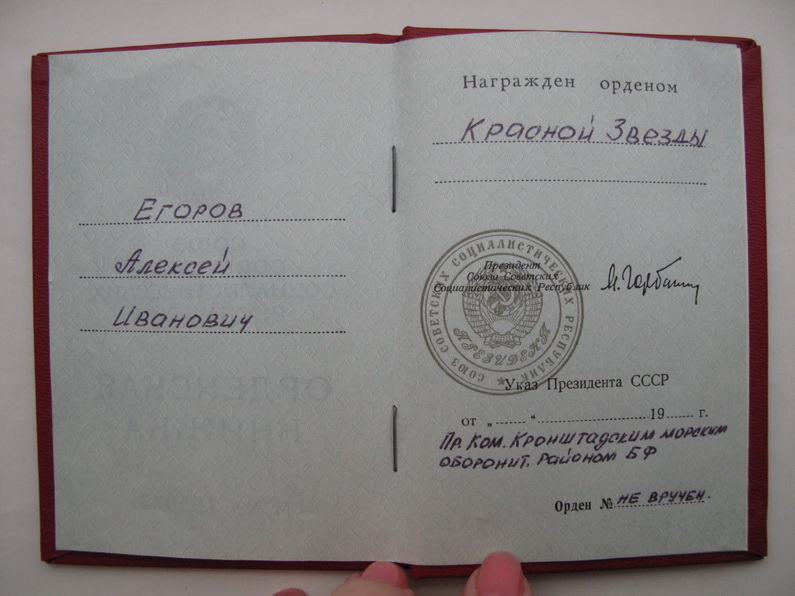 Егоров
Алексей
Иванович
Награжден орденом
Красной Звезды
СОЮЗ СОВЕТСКИХ СОЦИАЛИСТИЧЕСКИХ РЕСПУБЛИК
Президент
Союза Советских
Социалистических Республик
М. Горбачев
ПРЕЗИДЕНТ
Указ Президента СССР
от „ ...... “ ........................ 19 ...... г.
Пр. Ком. Кронштадским морским
оборонит. районом БФ
Орден № не вручен.